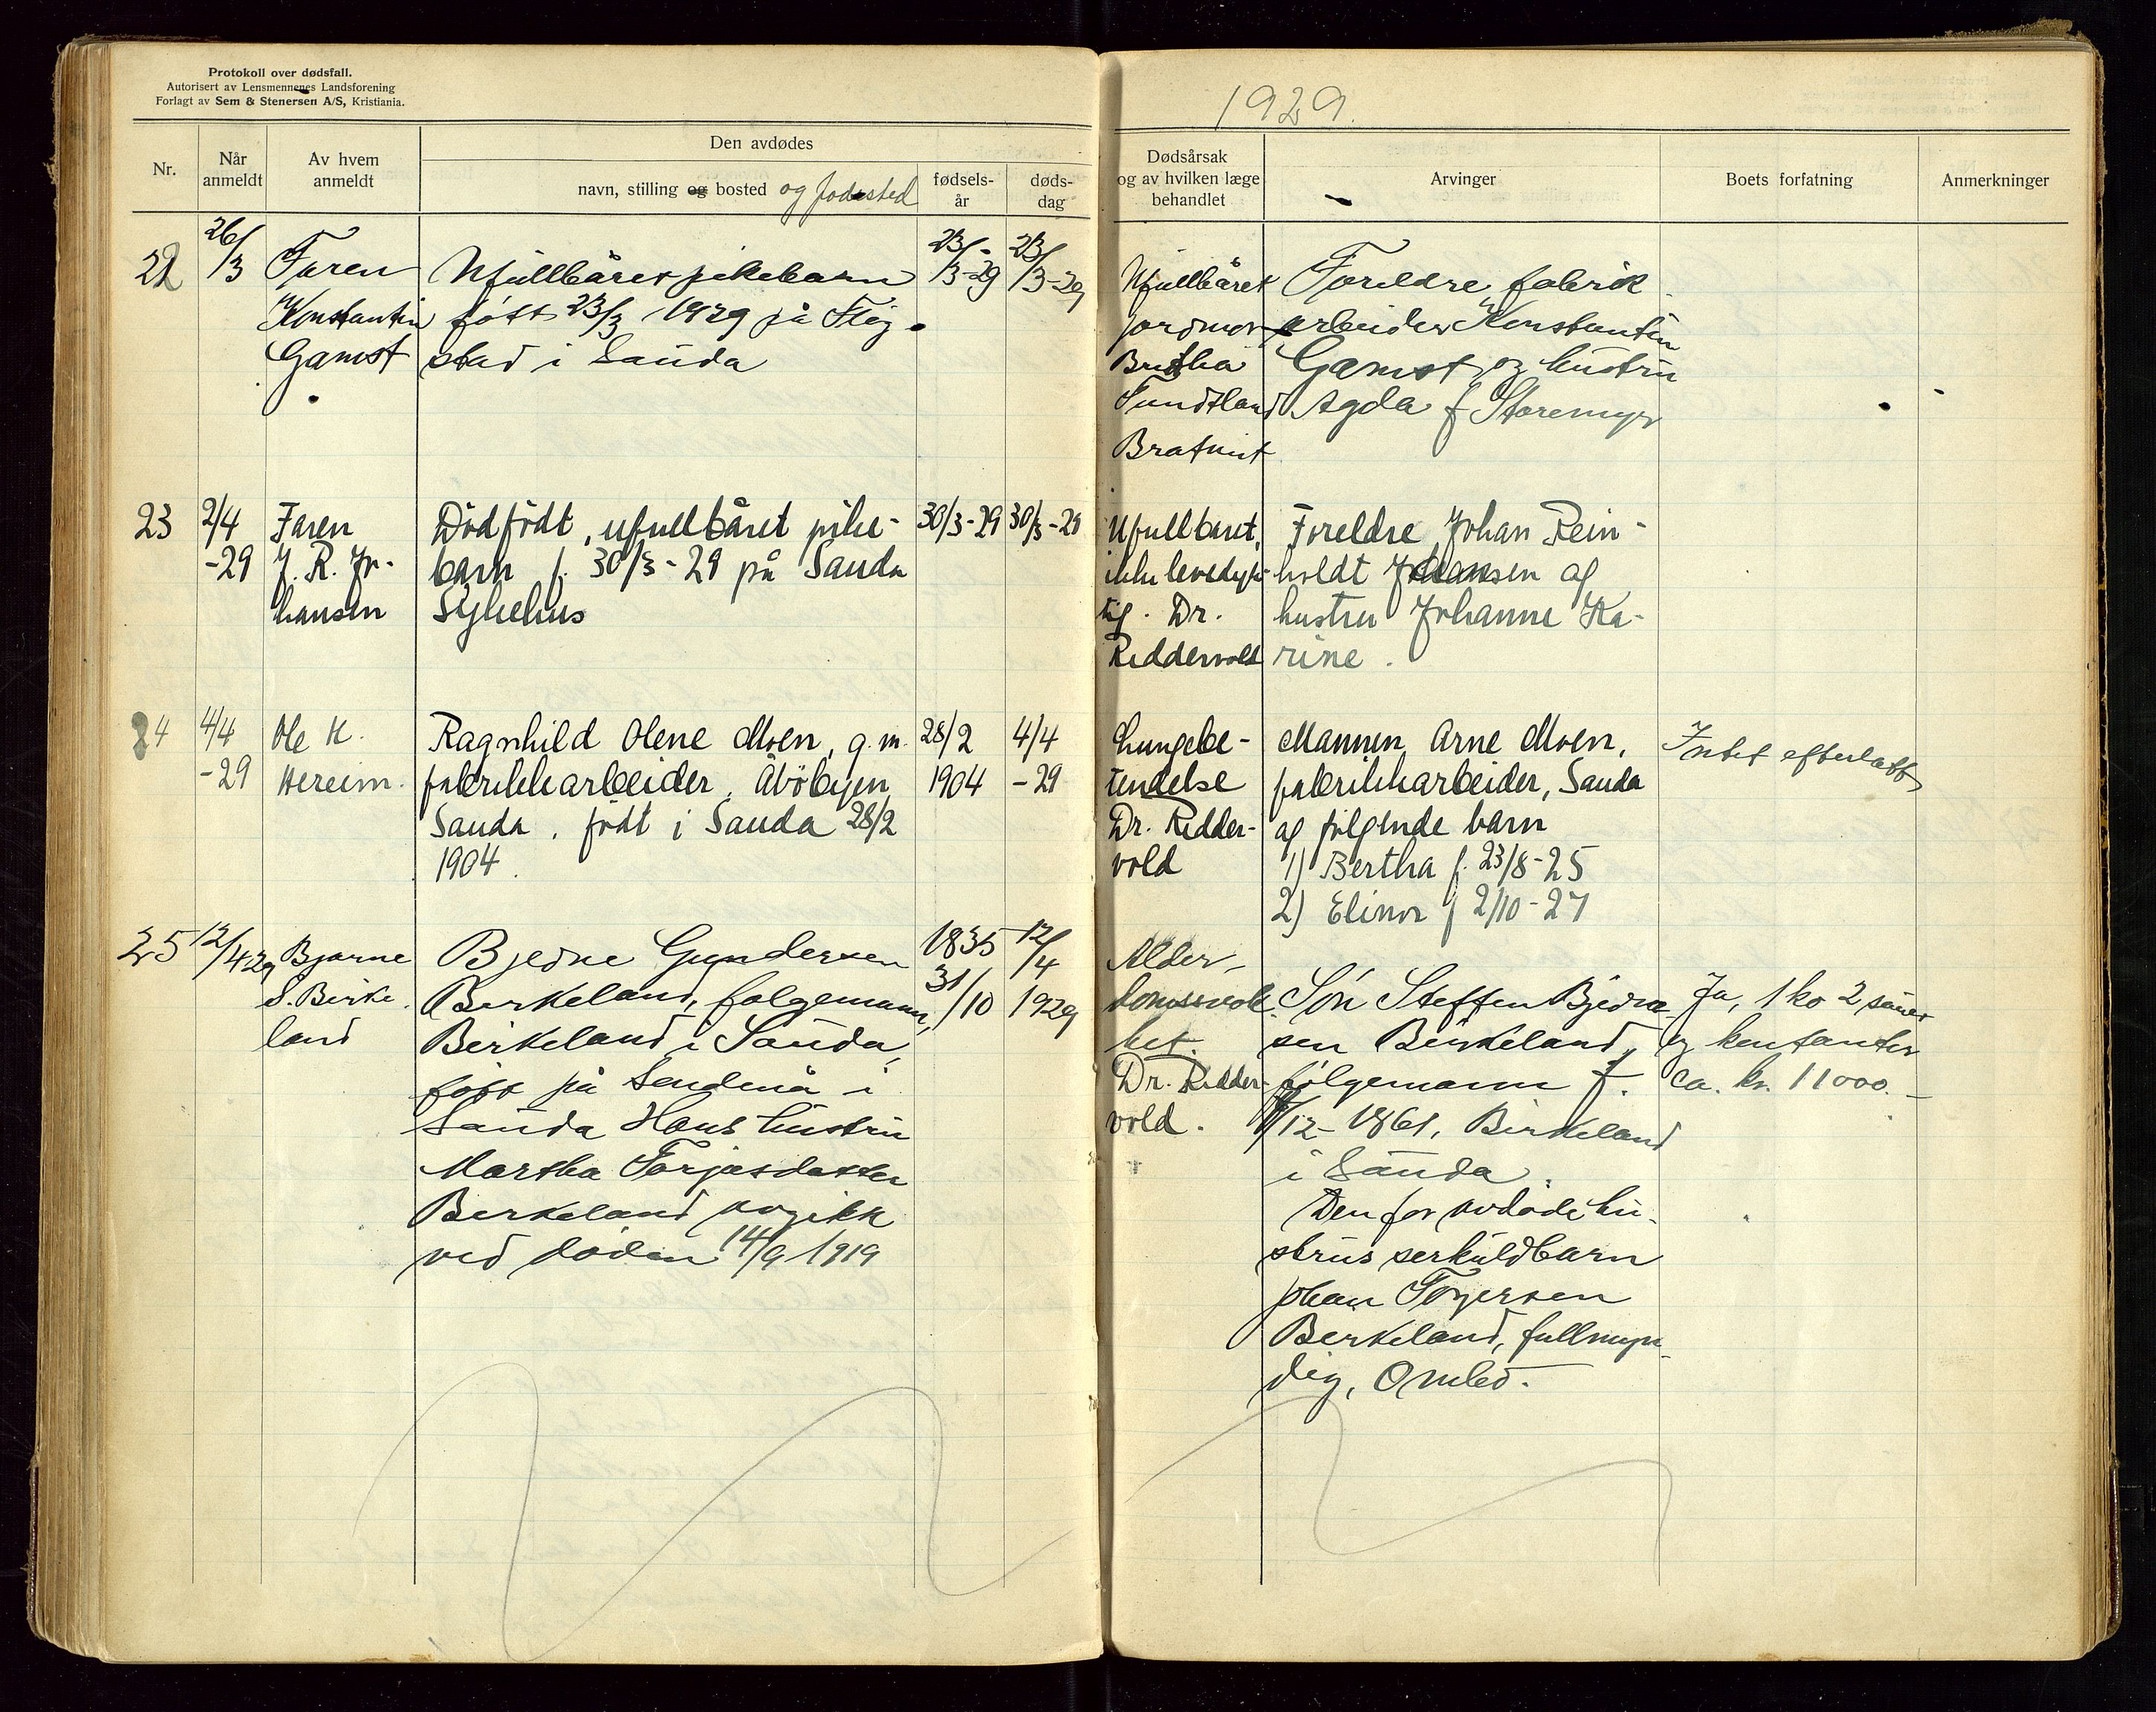 Protokoll over dødsfall.
Autorisert av Lensmennenes Landsforening
Forlagt av Sem & Stenersen A/S, Kristiania.
1929.
Nr.
Når anmeldt
Av hvem anmeldt
Den avdødes
navn, stilling og bosted og fødested
fødsels-år
døds-dag
Dødsårsak og av hvilken læge behandlet
Arvinger
Boets forfatning
Anmerkninger
22
26/3
Faren
Konstantin
Gamst
Ufullbåret pikebarn
født 23/3 1929 på Fløg-
stad i Sauda
23/3-29
23/3-29
Ufullbåret
jordmor
Bertha
Tundtland
Foreldre fabrik
arbeider Konstantin
Gamst og hustru
Agda f Storemyr
23
2/4
-29
Faren
J. R. Jo-
hansen
Dödfödt, ufullbåret pike-
barn f. 30/3-29 på Sauda
Sykehus
30/3-29
30/3-29
Ufullbaret,
ikke levedyk-
tig. Dr.
Reddervold
Foreldre Johan Rein-
holdt Johansen og
hustru Johanne Ka-
rine.
24
4/4
-29
Ole K.
Hereim.
Ragnhild Olene Moen, g.m.
fabrikkarbeider, Åböbyen
Sauda. födt i Sauda 28/2
1904.
28/2
1904
4/4
-29
Lungebe-
tendelse
Dr. Redder-
vold
Mannen Arne Moen,
fabrikkarbeider, Sauda
og følgende barn
1) Bertha f. 23/8-25
2) Elinor f 2/10-27
Intet efterlatt
25
12/4 29
Bjarne
S. Birke-
land
Bjedne Gundersen
Birkeland, følgemann,
Birkeland i Sauda,
født på Sendenå i
Sauda Hans hustru
Martha Torjasdatter
Birkeland avgikk
ved døden 14/9 1919
1835
31/10
12/4
1929
Alder-
domssvak-
het.
Dr. Redder-
vold.
Søn Steffen Bjedne-
sen Birkeland,
følgemann f.
/12-1861, Birkeland
i Sauda.
Den før avdøde hu-
strus serkuldbarn
Johan Torjersen
Birkeland, fullmyn-
dig, Ombo.
Ja, 1 ko 2 sauer
og kontanter
ca. kr. 11000.-